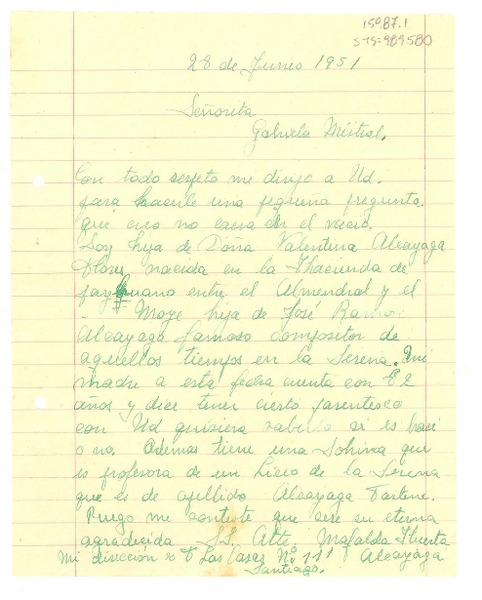 15987.1
SYS=989580
28 de Junio 1951
Señorita
Gabriela Mistral.
Con todo respeto me dirijo a Ud.
para hacerle una pequeña pregunta.
que creo no caera en el vacio.
Soy hija de Doña Valentina Alcayaga
Flores nacida en la Hacienda de
entre el Almendral y el
Moye hija de José Ramon
Alcayaga famoso compositor de
aquellos tiempos en la Serena. Mi
madre a esta fecha cuenta con 82
años y dice tener cierto parentesco
con Ud quisiera saberlo si es haci
o no. Ademas tiene una Sobrina que
es profesora de un Liceo de la Serena
que es de apellido Alcayaga
Ruego me conteste que sere su eterna
agradecida SS. Atte. Mafalda Huerta
Alcayaga
Mi dirección es Las Casas Nº
Santiago.